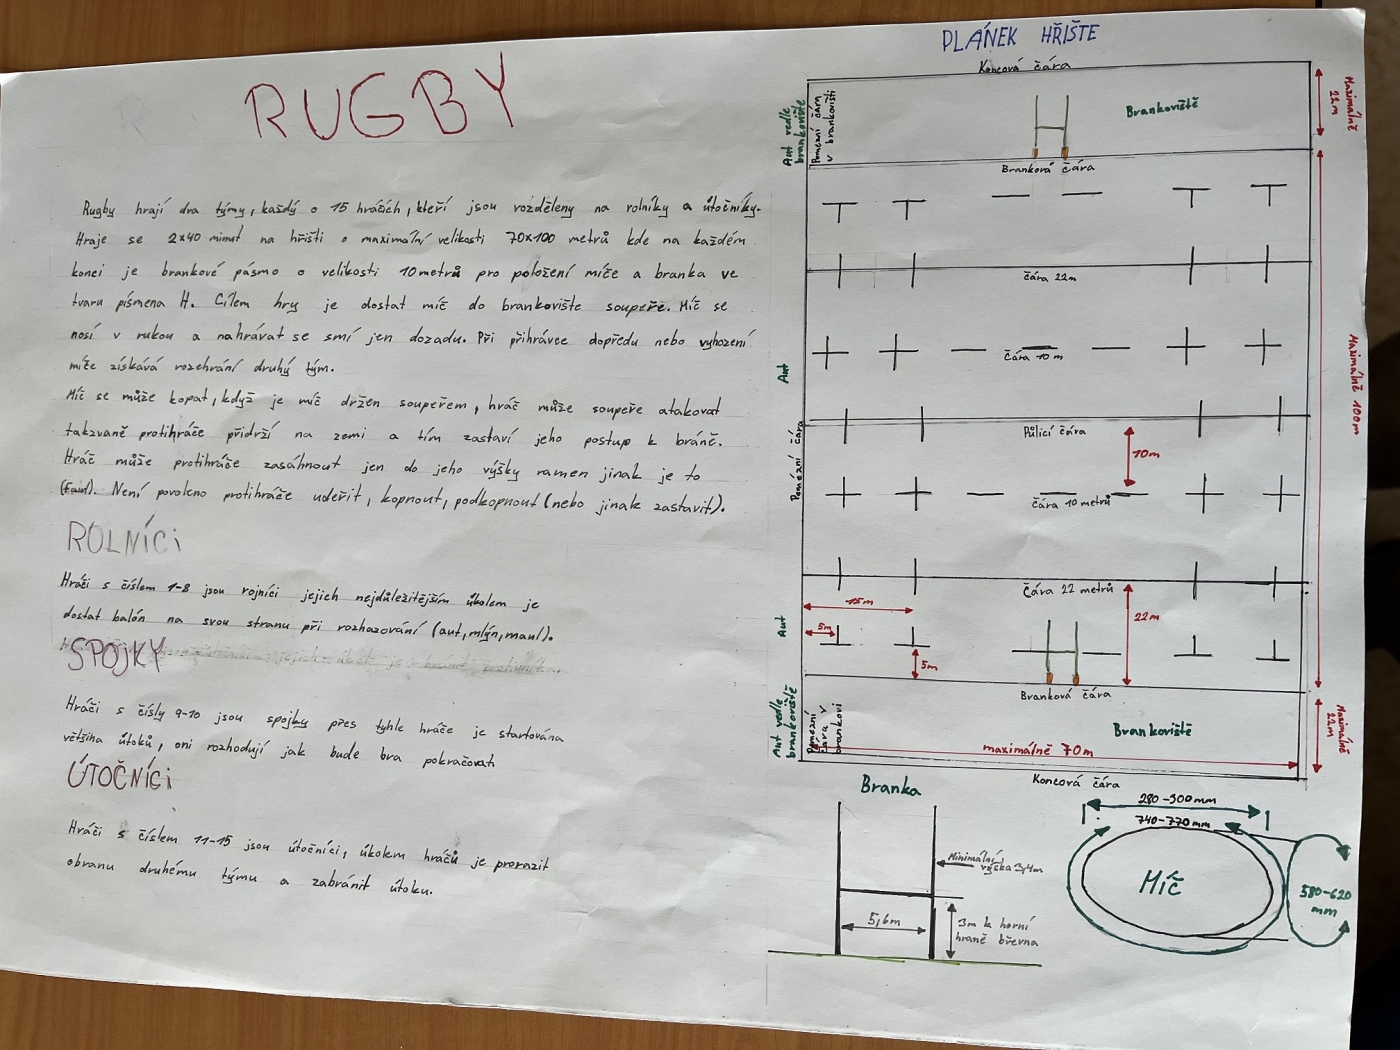 RUGBY
Rugby hrají dva týmy, každý o 15 hráčích, kteří jsou rozděleny na rolníky a útočníky.
Hraje se 2x40 minut na hřišti o maximální velikosti 70x100 metrů kde na každém
konci je brankové pásmo o velikosti 10 metrů pro položení míče a branka ve
tvaru písmena H. Cílem hry je dostat míč do brankoviště soupeře. Míč se
nosí v rukou a nahrávat se smí jen dozadu. Při přihrávce dopředu nebo vyhození
míče získává rozehrání druhý tým.
Míč se může kopat, když je míč držen soupeřem, hráč může soupeře atakovat
takzvaně protihráče přidrží na zemi a tím zastaví jeho postup k bráně.
Hráč může protihráče zasáhnout jen do jeho výšky ramen jinak je to
(faul). Není povoleno protihráče udeřit, kopnout, podkopnout (nebo jinak zastavit).
ROLNÍCI
Hráči s číslem 1-8 jsou rojníci jejich nejdůležitějším úkolem je
dostat balón na svou stranu při rozhazování (aut, mlýn, maul).
SPOJKY
Hráči s čísly 9-10 jsou spojky přes tyhle hráče je startována
většina útoků, oni rozhodují jak bude hra pokračovat
ÚTOČNÍCI
Hráči s číslem 11-15 jsou útočníci, úkolem hráčů je prorazit
obranu druhému týmu a zabránit útoku.
PLÁNEK HŘIŠTE
Koncová čára
Aut vedle brankoviště
Pomezní čára v brankovišti
Brankoviště
Maximálně 22m
Branková čára
čára 22m
čára 10 m
Aut
Maximálně 100m
Půlící čára
10m
Pomezní čára
čára 10 metrů
čára 22 metrů
15m
22m
Aut
5m
5m
Branková čára
Aut vedle brankoviště
Pomezní čára v brankovi
Brankoviště
Maximálně 22m
maximálně 70m
Koncová čára
Branka
Minimální výška 3,4m
5,6m
3m k horní
hraně břevna
280-300mm
740-770mm
Míč
580-620
mm